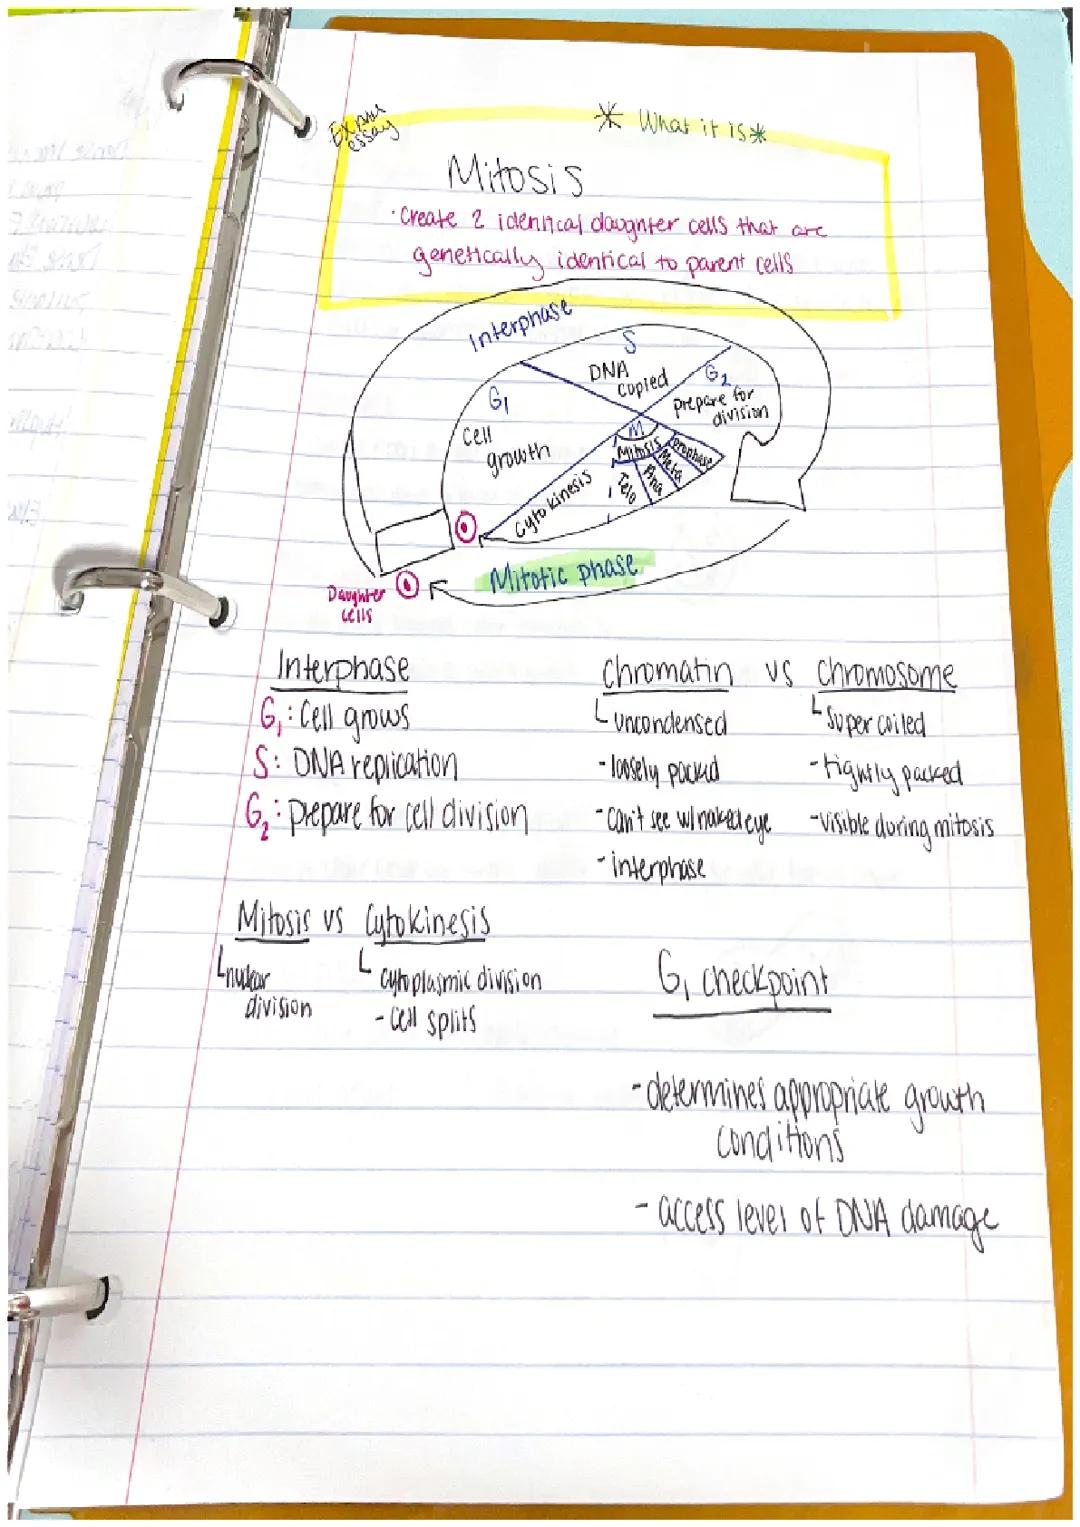 Exam
essay
* What it is *
Mitosis
· Create 2 identical daughter cells that are
genetically identical to parent cells
Interphase
S
DNA
copied
G2
prepare for
division
G1
Cell
growth
M
Mitosis
prophase
Meta
Ana
Telo
Cytokinesis
Mitotic phase
Daughter
cells
Interphase
G1: Cell grows
S: DNA replication
G2: prepare for cell division
Chromatin vs Chromosome
uncondensed
super coiled
- loosely packed
- tightly packed
- can't see w/ naked eye
- visible during mitosis
- interphase
Mitosis vs Cytokinesis
nuclear
division
cytoplasmic division
- cell splits
G1 checkpoint
- determines appropriate growth
conditions
- access level of DNA damage